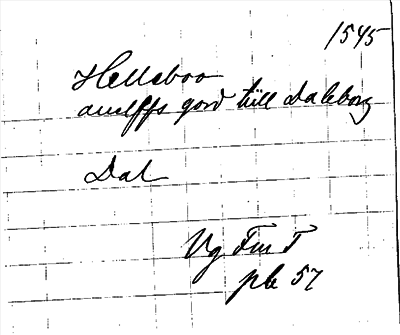 1545
Helleboo
audlffs gord till Daleborg
Dal
Vg Fm T
pb 57